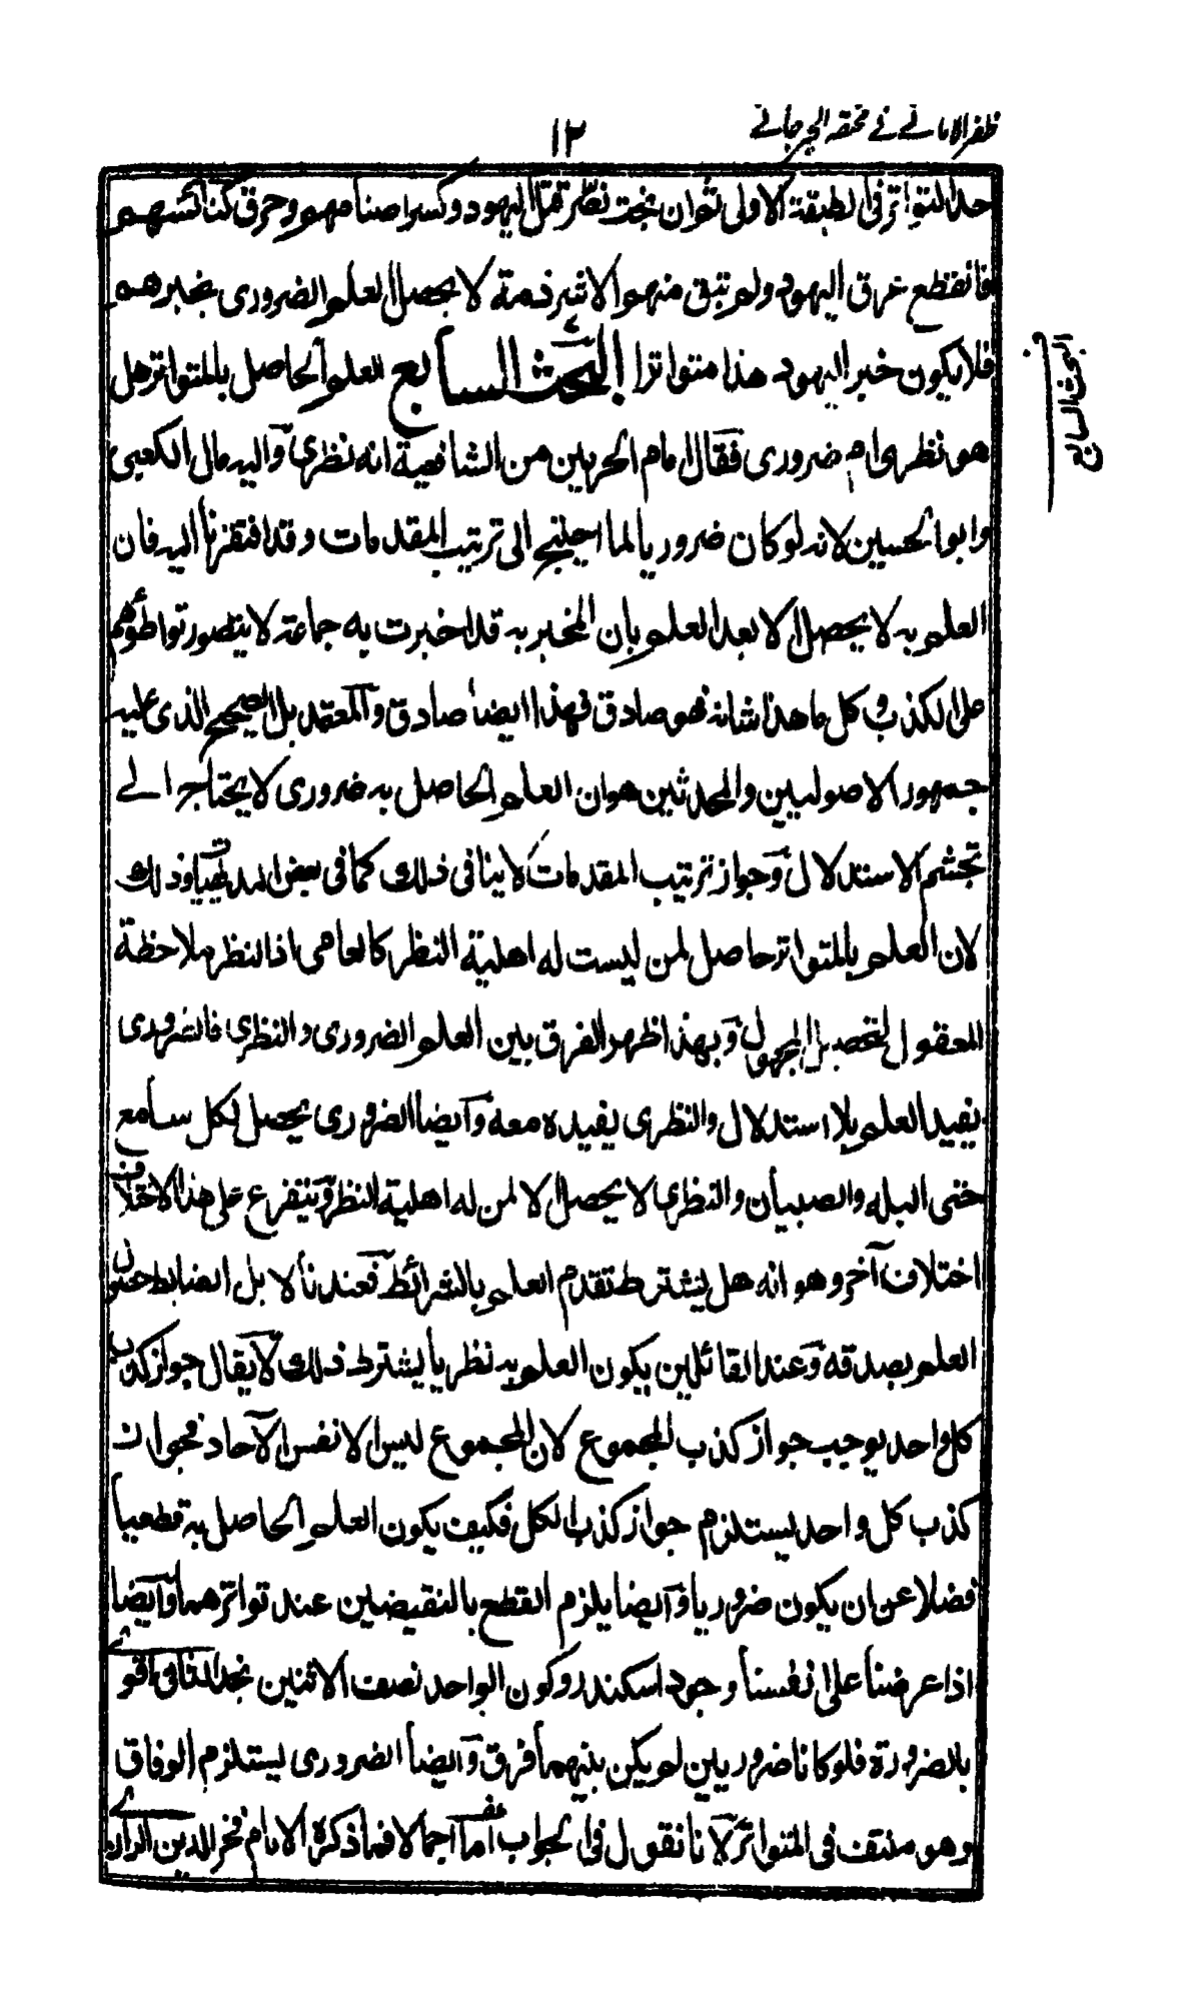 ظفر الامانے فے مختصر الجرجانے
١٢
حد التواتر فی الطبقة الاولی ثم ان بخت نصّر قتل الیهود وکسر اصنامهم وحرق کتائبهم
فانقطع عرق الیهود ولم تبق منهم الا شرذمة لا یحصل العلم الضروری بخبرهم
فلا یکون خبر الیهود هذا متواترا البحث السابع العلم الحاصل بالمتواتر هل
البحث السابع
هو نظری ام ضروری فقال امام الحرمین من الشافعیة انه نظری والیه مال الکعبی
وابو الحسین لانه لو کان ضروریا لما احتیج الی ترتیب المقدمات وقد افتقرنا الیه فان
العلم به لا یحصل الا بعد العلم بان المخبر به قد اخبرت به جماعة لا یتصور تواطؤهم
علی الکذب وکل ما هذا شانه فهو صادق فهذا ایضا صادق والمعتمد بل الصحیح الذی علیه
جمهور الاصولیین والمحدثین هو ان العلم الحاصل به ضروری لا یحتاج الے
تجشم الاستدلال وجواز ترتیب المقدمات لا ینافی ذلک کما فی بعض البدیهیات وذلک
لان العلم بالمتواتر حاصل لمن لیست له اهلیة النظر کالعامی اذ النظر ملاحظة
المعقول لتحصیل المجهول وبهذا ظهر الفرق بین العلم الضروری والنظری فالضروری
یفید العلم بلا استدلال والنظری یفیده معه وایضا الضروری یحصل لکل سامع
حتی البله والصبیان والنظری لا یحصل الا لمن له اهلیة النظر ویتفرع علی هذا الاختلاف
اختلاف آخر وهو انه هل یشترط تقدم العلم بالشرائط فعندنا لا بل الضابط حصول
العلم بصدقه وعند القائلین بکون العلم به نظریا یشترط ذلک لا یقال جواز کذب
کل واحد یوجب جواز کذب المجموع لان المجموع لیس الا نفس الآحاد فجواز
کذب کل واحد یستلزم جواز کذب الکل فکیف یکون العلم الحاصل به قطعیا
فضلا عن ان یکون ضروریا وایضا یلزم القطع بالنقیضین عند تواترهما وایضا
اذا عرضنا علی انفسنا وجود اسکندر وکون الواحد نصف الاثنین نجد الثانی اقوے
بالضرورة فلو کانا ضروریین لم یکن بینهما فرق وایضا الضروری یستلزم الوفاق
وهو منتف فی المتواتر لانا نقول فی الجواب اما اجمالا فما ذکره الامام فخر الدین الرازے